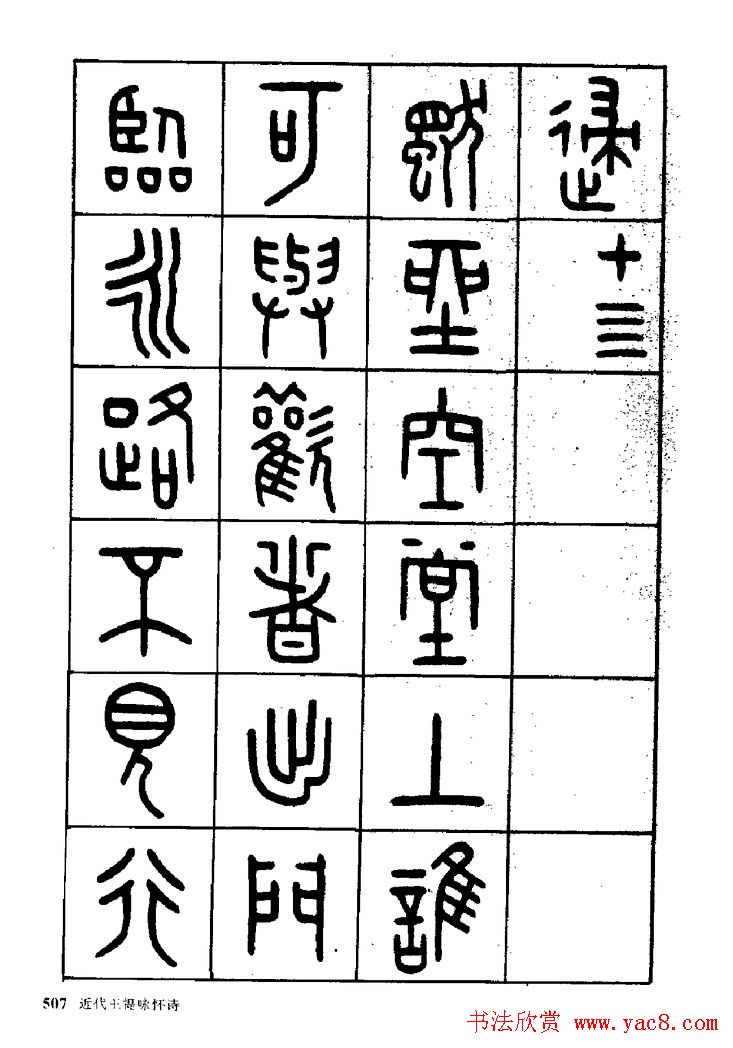 逮
十亖
獨坐空堂上誰
可與歡者出門
臨永路不見行
507 近代王禔咏怀诗
书法欣赏 www.yac8.com